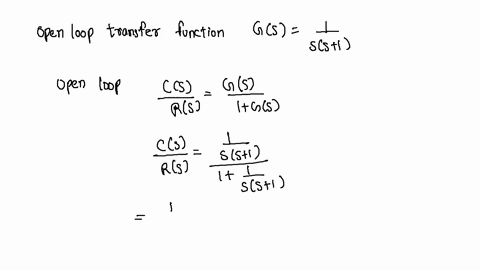 Open loop transfer function G(s) = 1/s(s+1)
Open loop C(s)/R(s) = G(s)/1+G(s)
C(s)/R(s) = 1/s(s+1)/1+1/s(s+1)
= 1